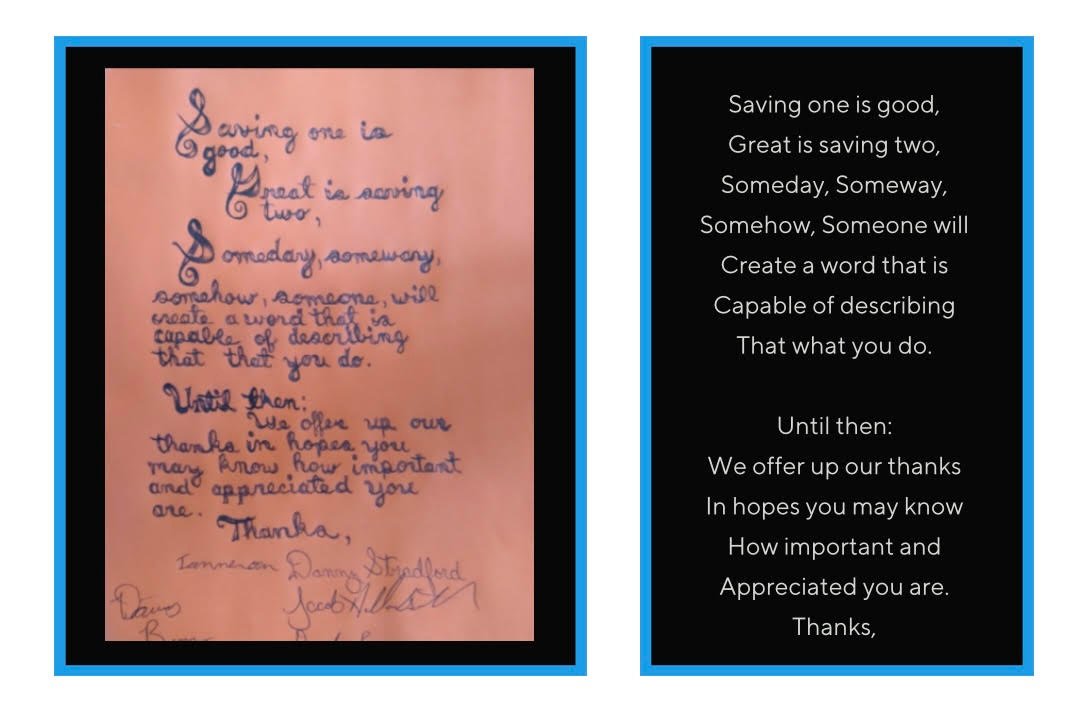 Saving one is
good,
Great is saving
two,
Someday, someway,
somehow, someone, will
create a word that is
capable of describing
that that you do.
Until then:
We offer up our
thanks in hopes you
may know how important
and appreciated you
are.
Thanks,
Danny Stradford
Jacob
Saving one is good,
Great is saving two,
Someday, Someway,
Somehow, Someone will
Create a word that is
Capable of describing
That what you do.
Until then:
We offer up our thanks
In hopes you may know
How important and
Appreciated you are.
Thanks,